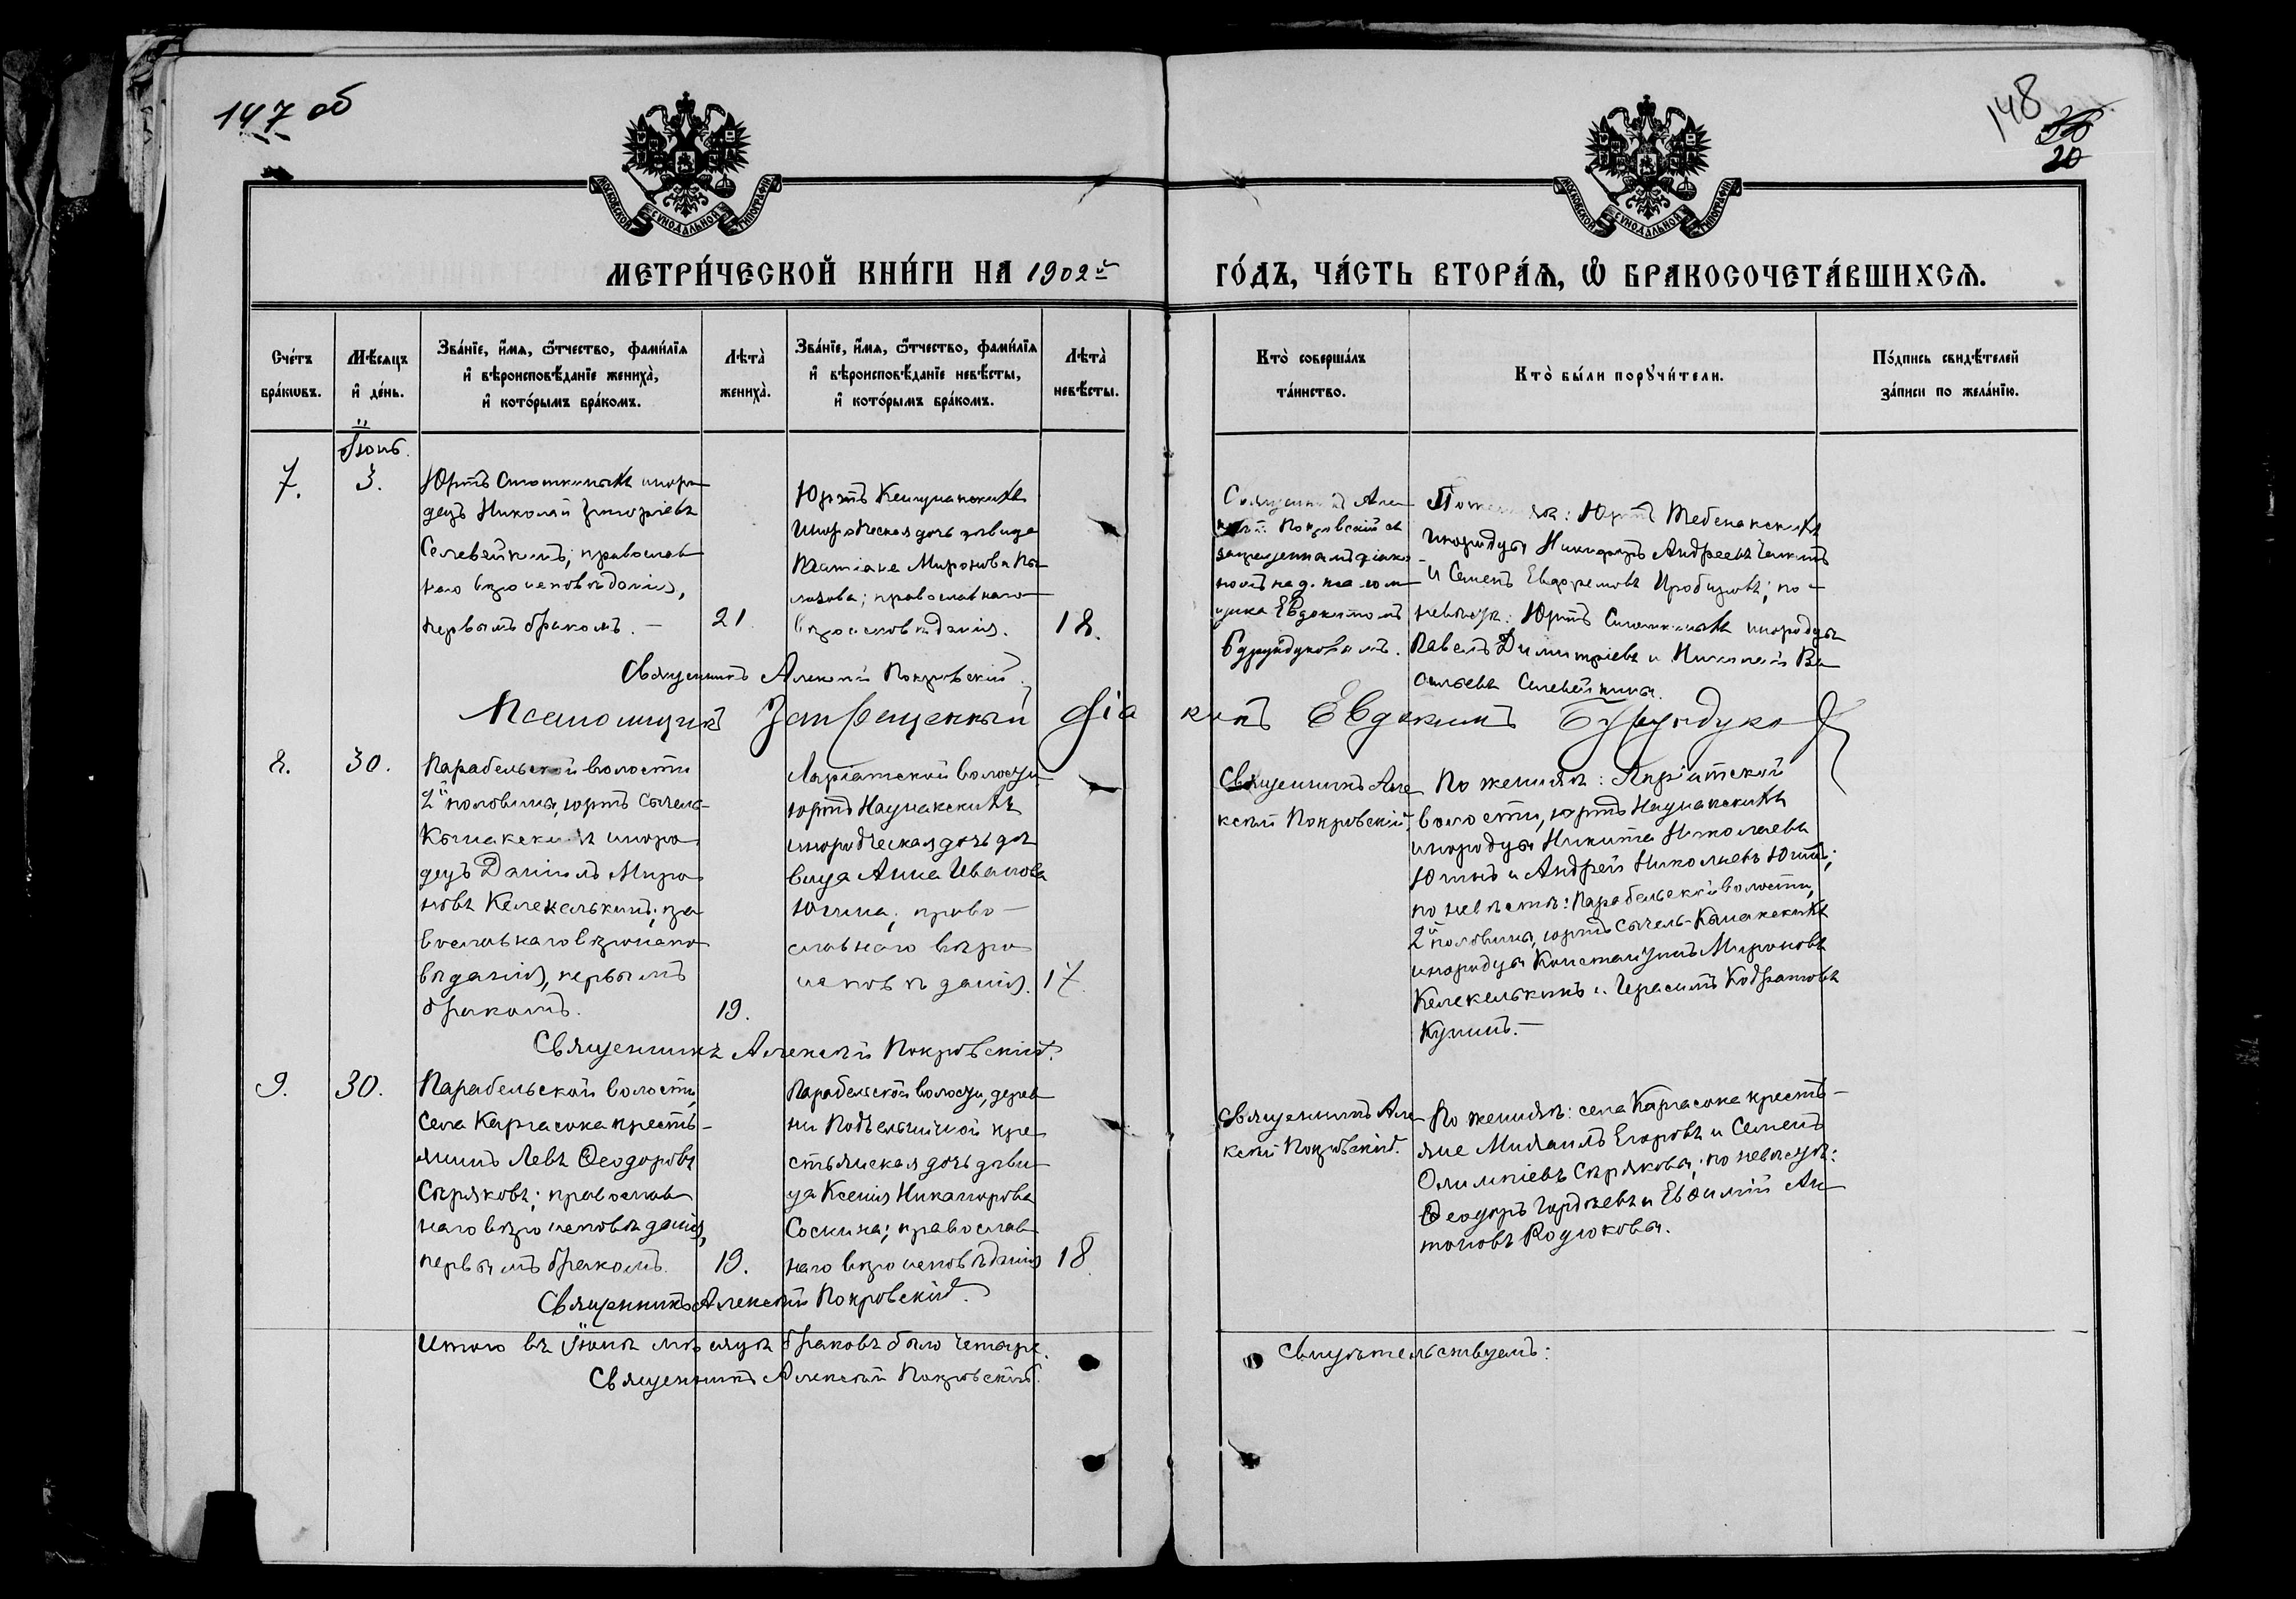 147 об
148
20
МОСКОВСКОЙ СѴНОДАЛЬНОЙ ТИПОГРАФІИ
МОСКОВСКОЙ СѴНОДАЛЬНОЙ ТИПОГРАФІИ
МЕТРИ́ЧЕСКОЙ КНИ́ГИ НА 1902й
ГО́ДЪ, ЧА́СТЬ ВТОРА́Ѧ, Ѽ БРАКОСОЧЕТА́ВШИХСѦ.
Сче́тъ
бра́кωвъ.
Мѣ́сѧцъ
и҆ де́нь.
Зва́нїе, и҆́мѧ, ѻ҆́тчество, фами́лїѧ
и҆ вѣроисповѣ́данїе жениха̀,
и҆ кото́рымъ бра́комъ.
Лѣта̀
жениха̀.
Зва́нїе, и҆́мѧ, ѻ҆́тчество, фами́лїѧ
и҆ вѣроисповѣ́данїе невѣ́сты,
и҆ кото́рымъ бра́комъ.
Лѣта̀
невѣ́сты.
Кто̀ соверша́лъ
та́инство.
Кто̀ бы́ли порꙋчи́тели.
По́дпись свидѣ́телей
за́писи по жела́нїю.
Іюнь.
7.
3.
Юртъ иноро
децъ Николай Григоріевъ
Селевейкинъ; православ
наго вѣроисповѣданія,
первымъ бракомъ. —
21
Юртъ
Инородческая дочь дѣвица
Татіана Миронова
православнаго
вѣроисповѣданія.
18.
Алек
сѣй Покровскій съ
запрещеннымъ діако
номъ на д. псалом
щика Евдокимомъ
Бурундуковымъ.
Юртъ Тебенакскихъ
инородцы Никифоръ Андреевъ
и Семенъ по
невѣстѣ: Юртъ инородцы
Павелъ Димитріевъ и Николай Ва
сильевъ Селевейкины.
Священникъ Алексѣй Покровскій.
Псаломщикъ Запрещенный діаконъ Евдокимъ Бурундуков
8.
30.
Парабельской волости
2й половины, юртъ Сычель-
Камакскихъ иноро
децъ Даніилъ Миро
новъ Келекелькинъ; пра
вославнаго вѣроиспо
вѣданія, первымъ
бракомъ.
19.
Ларіатской волости
юртъ Наунакскихъ
инородческая дочь дѣ
вица Анна Иванова
Югина; право-
славнаго вѣро
исповѣданія.
17
Священникъ Але
ксѣй Покровскій.
По женихѣ: Ларіатской
волости, юртъ Наунакскихъ
инородцы Никита Николаевъ
Югинъ и Андрей Николаевъ Югинъ;
по невѣстѣ: Парабельской волости,
2й половины, юртъ Сычель-Камакскихъ
инородцы Константинъ Мироновъ
Келекелькинъ и Герасимъ Кодратовъ
Священникъ Алексѣй Покровскій.
9.
30.
Парабельской волости
Села Каргасока кресть-
янинъ Левъ Ѳеодоровъ
Сѣряковъ; православ
наго вѣроисповѣданія,
первымъ бракомъ.
19.
Парабельской волости, дерев
ни Подъельничной кре
стьянская дочь дѣви
ца Ксенія Никанорова
Соснина; православ
наго вѣроисповѣданія
18
Священникъ Але
ксѣй Покровскій.
По женихѣ: села Каргасока кресть-
яне Михаилъ Егоровъ и Семенъ
Олимпіевъ Сѣряковы; по невѣстѣ:
Ѳеодоръ Гордѣевъ и Евѳимій Ан
тоновъ Родюковы.
Священникъ Алексѣй Покровскій.
Итого въ Іюнѣ мѣсяцѣ браковъ было четыре.
Священникъ Алексѣй Покровскій.
Свидѣтельствуемъ: